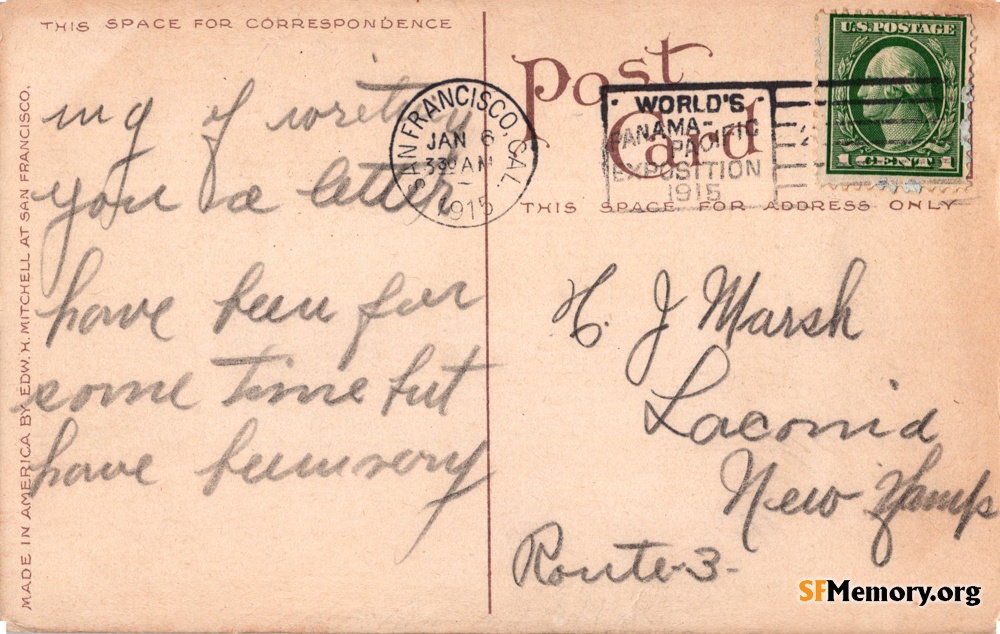 THIS SPACE FOR CORRESPONDENCE
ing of writing
you a letter
have been for
some time but
have been very
MADE IN AMERICA BY EDW. H. MITCHELL AT SAN FRANCISCO.
Post Card
SAN FRANCISCO, CAL.
JAN 6
330 AM
1915
WORLD'S
PANAMA-
PACIFIC
EXPOSITION
1915
U.S. POSTAGE
1 CENT 1
THIS SPACE FOR ADDRESS ONLY
H. J Marsh
Laconia
New Hamp
Route-3-
SFMemory.org